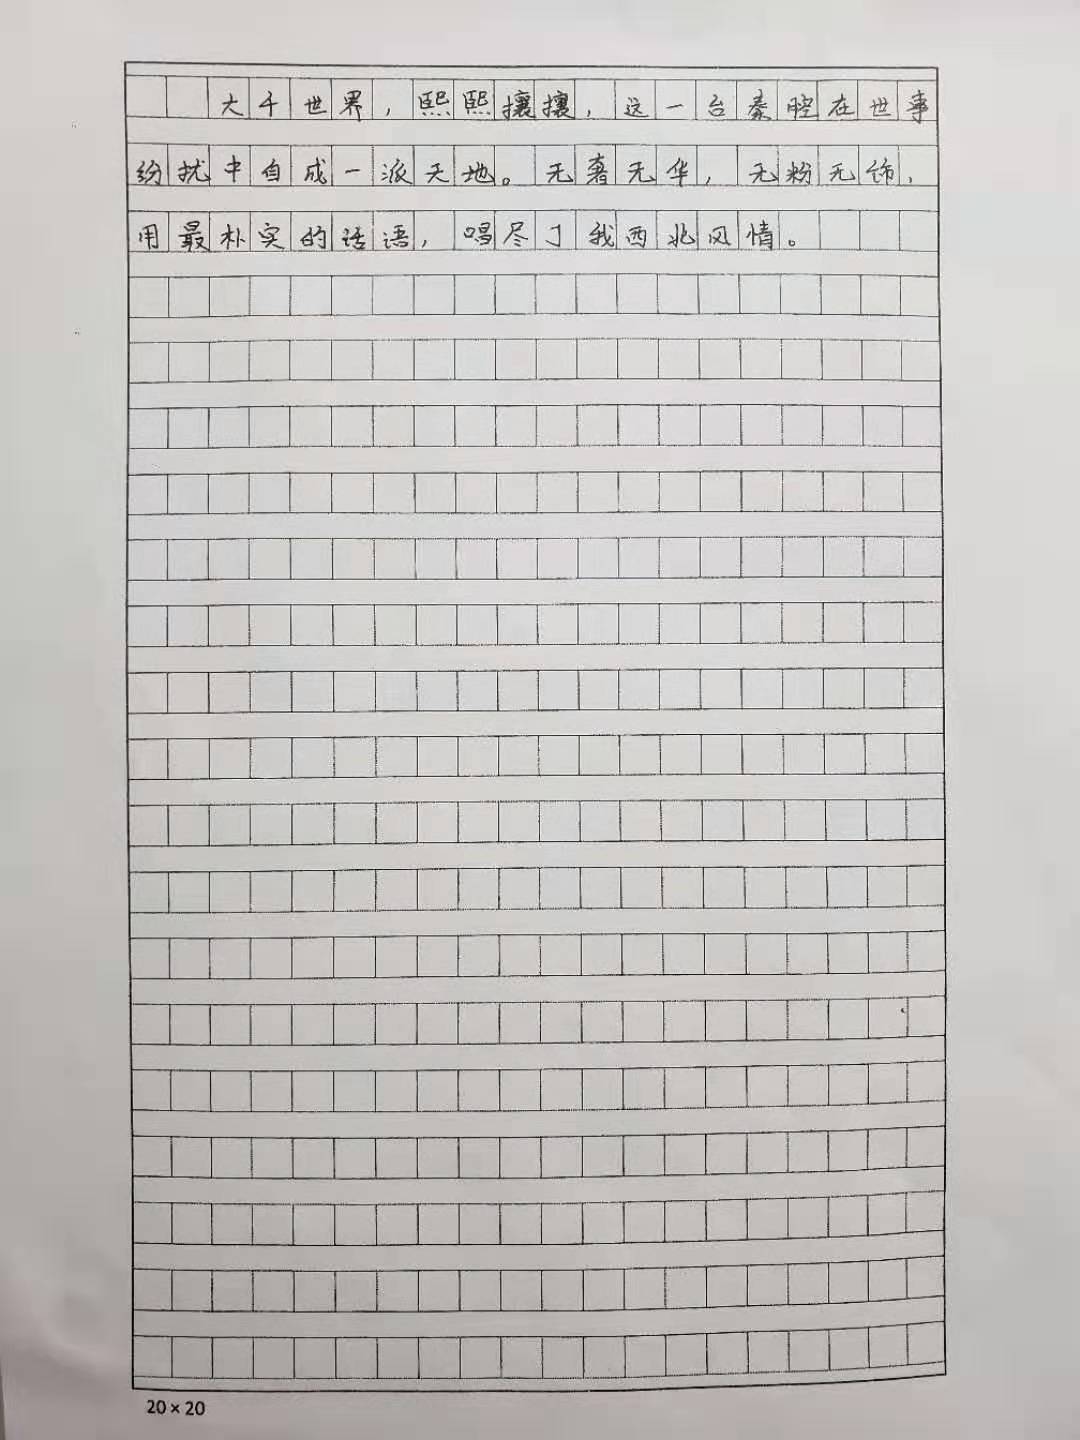 大千世界，熙熙攘攘，这一台秦腔在世事
纷扰中自成一派天地。无奢无华，无粉无饰，
用最朴实的话语，唱尽了我西北风情。
20×20